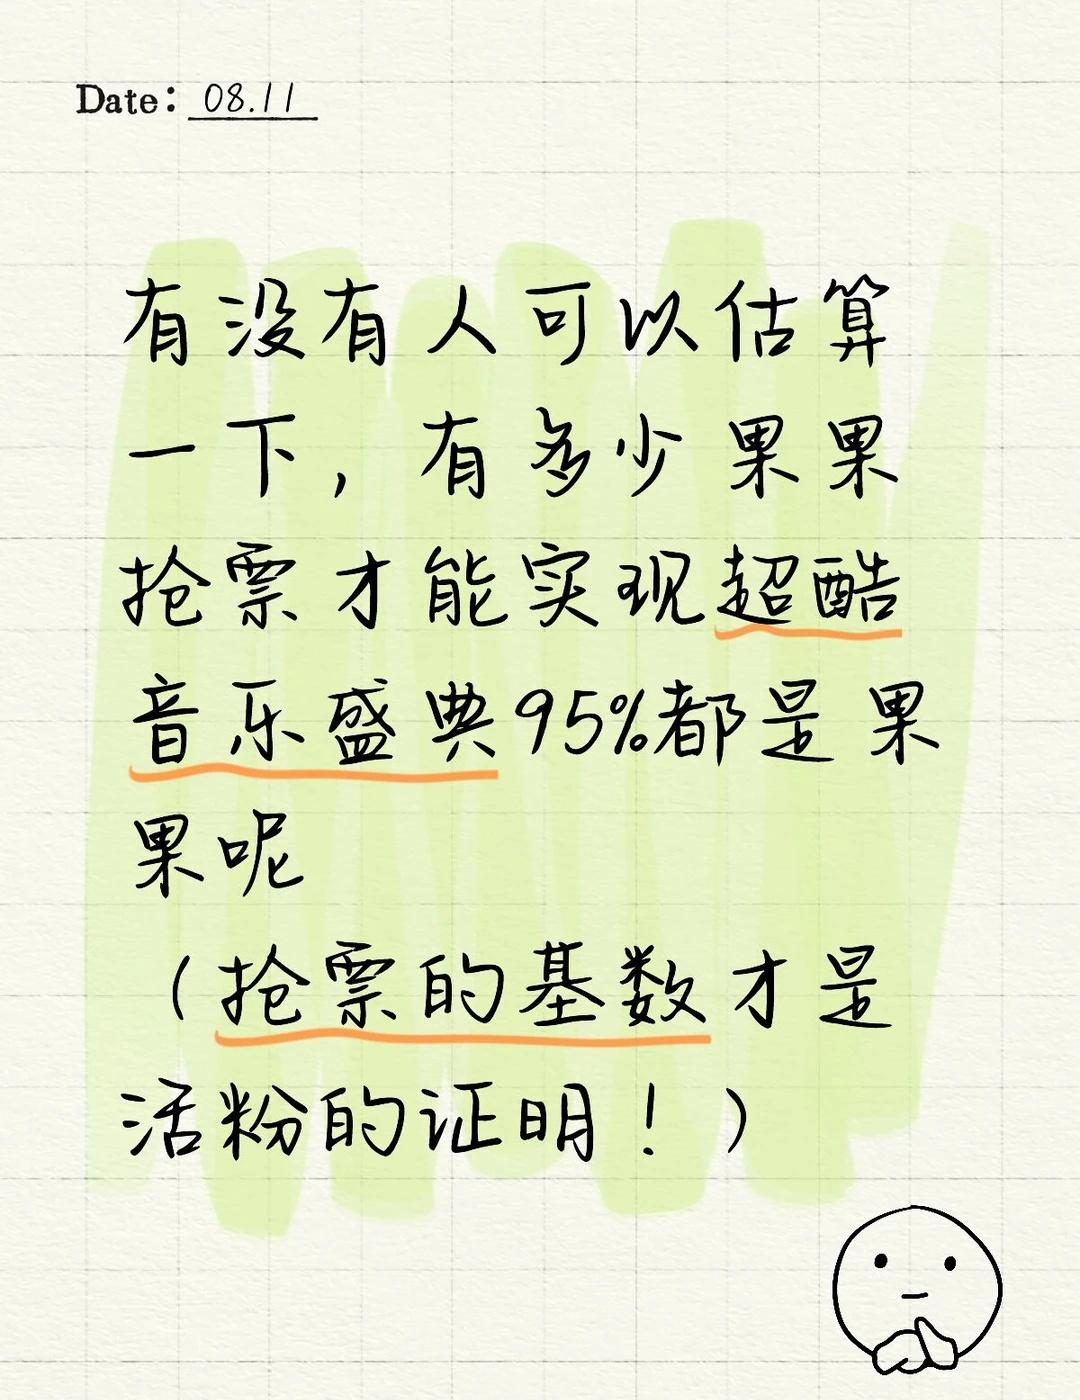 Date: 08.11
有没有人可以估算
一下，有多少果果
抢票才能实现超酷
音乐盛典95%都是果
果呢
（抢票的基数才是
活粉的证明！）